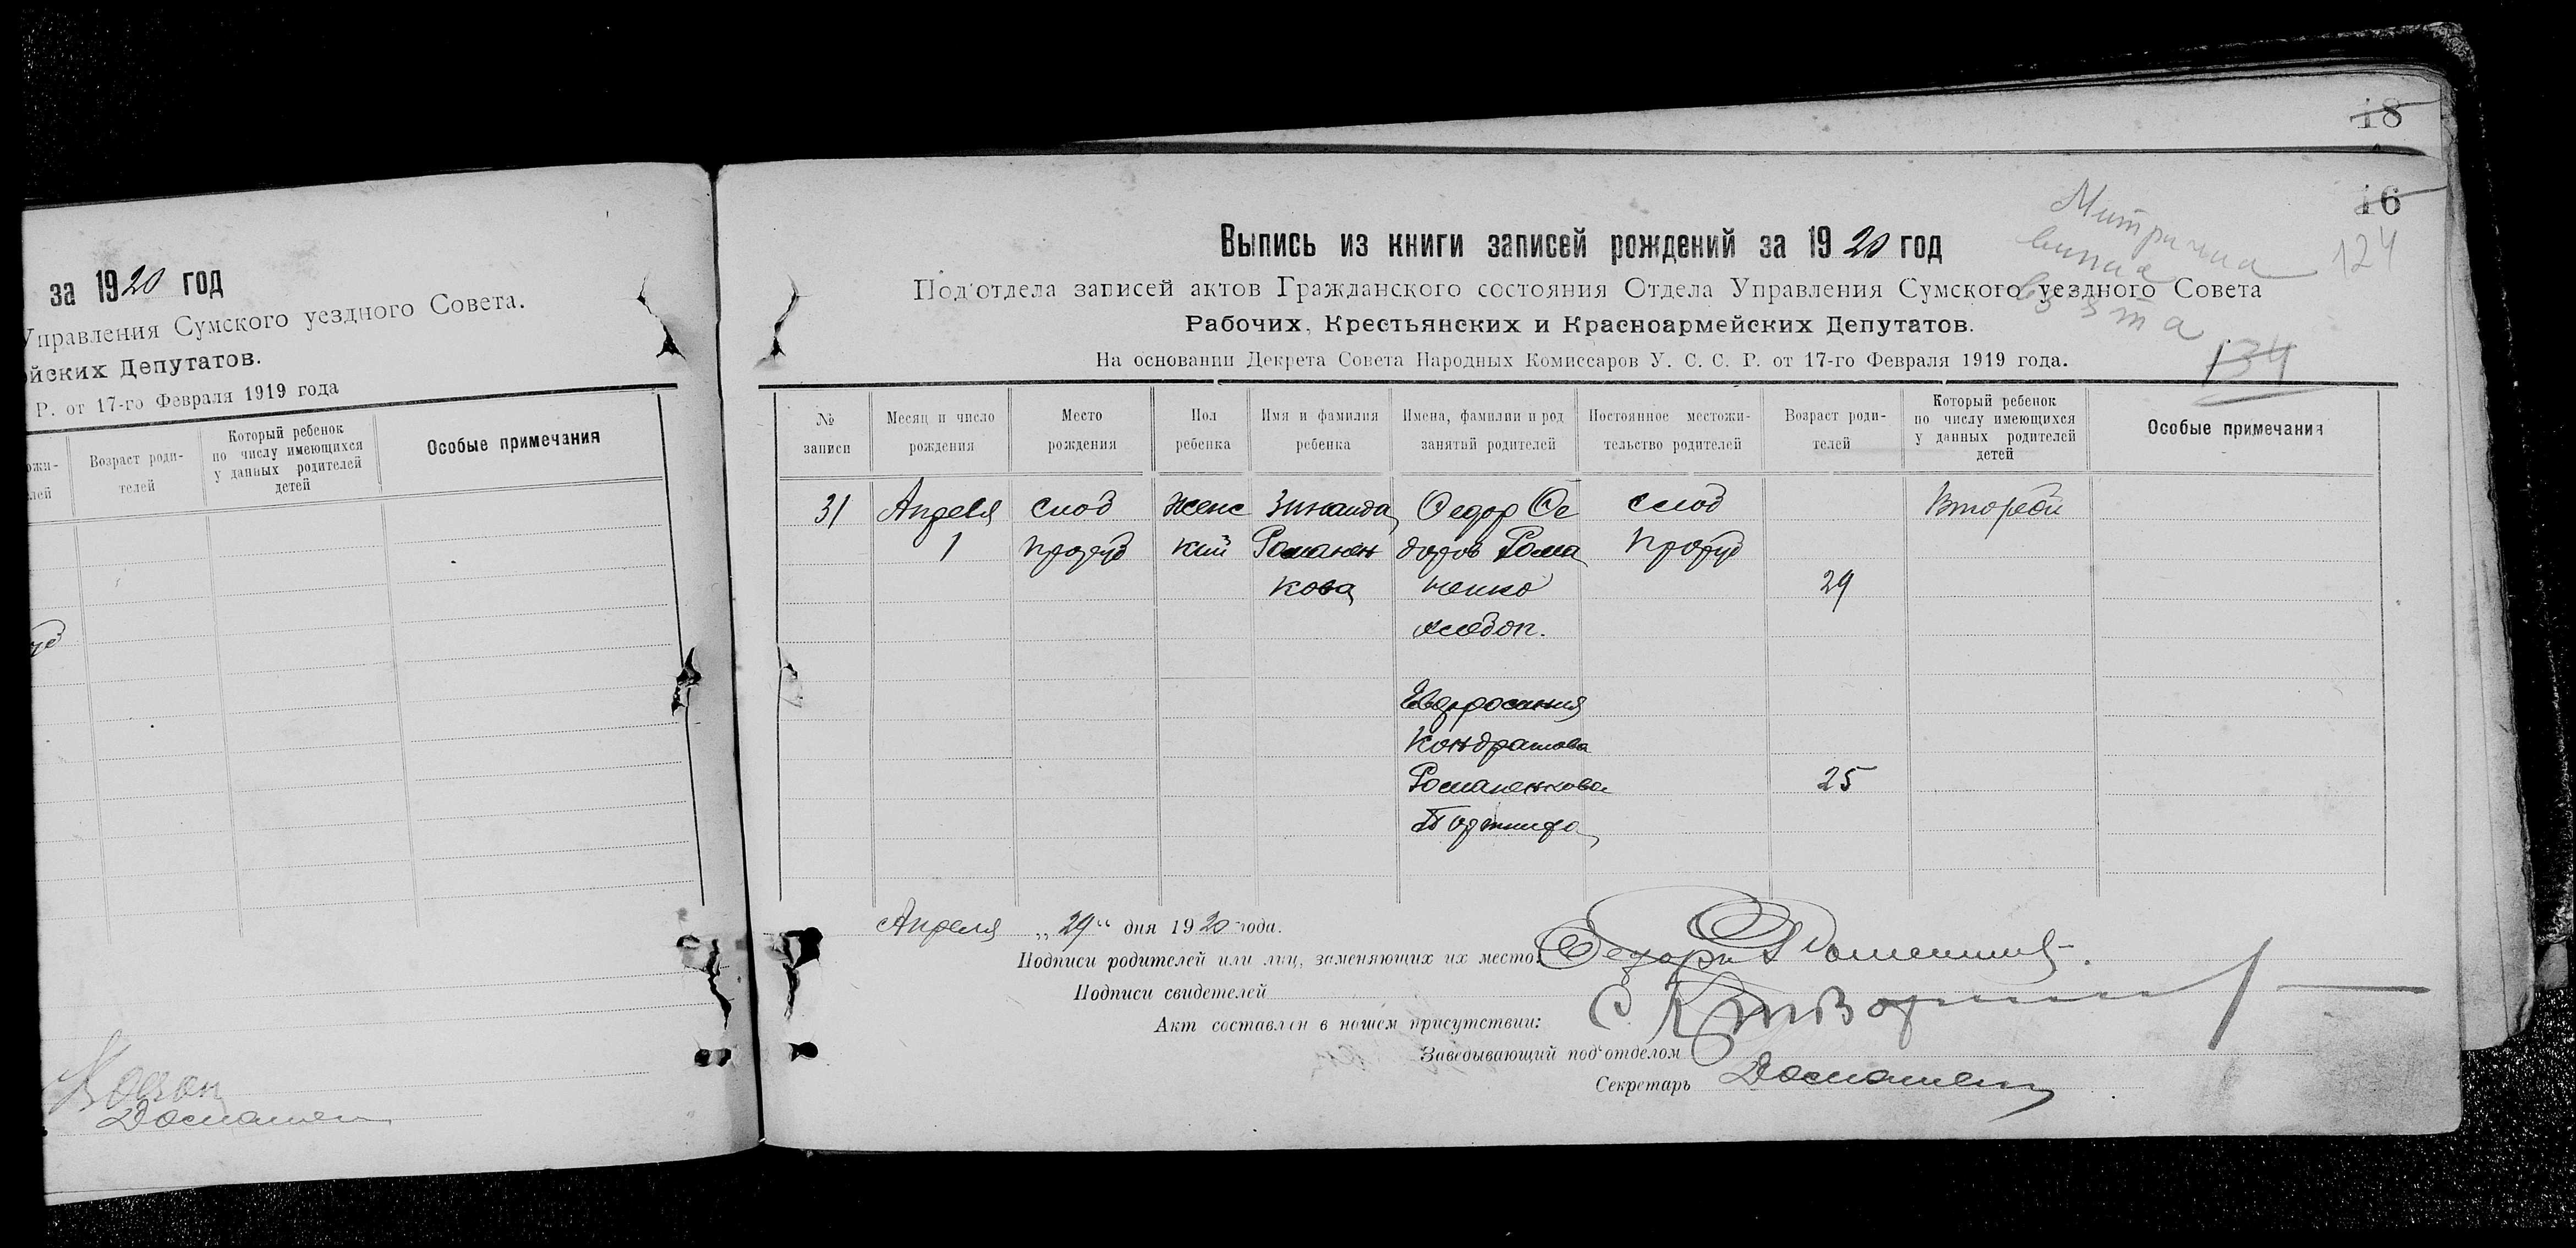 за 1920 год
Управления Сумского уездного Совета.
йских Депутатов.
Р. от 17-го Февраля 1919 года
ожи-
лей
Возраст роди-
телей
Который ребенок
по числу имеющихся
у данных родителей
детей
Особые примечания
18
16
124
134
Выпись из книги записей рождений за 1920 год
Под'отдела записей актов Гражданского состояния Отдела Управления Сумского уездного Совета
Рабочих, Крестьянских и Красноармейских Депутатов.
На основании Декрета Совета Народных Комиссаров У. С. С. Р. от 17-го Февраля 1919 года.
№
записи
Месяц и число
рождения
Место
рождения
Пол
ребенка
Имя и фамилия
ребенка
Имена, фамилии и род
занятий родителей
Постоянное местожи-
тельство родителей
Возраст роди-
телей
Который ребенок
по числу имеющихся
у данных родителей
детей
Особые примечания
31
Апреля
1
слоб
женс
кий
Зинаида
Романен
кова
Федор Фе
доров Рома
ненко
хлебоп.
Евфросиния
Кондратова
Романенкова
слоб
29
25
Второй
Апреля „29“ дня 1920 года.
Подписи родителей или лиц, заменяющих их место:
Подписи свидетелей
Акт составлен в нашем присутствии:
Заведывающий под'отделом
Секретарь